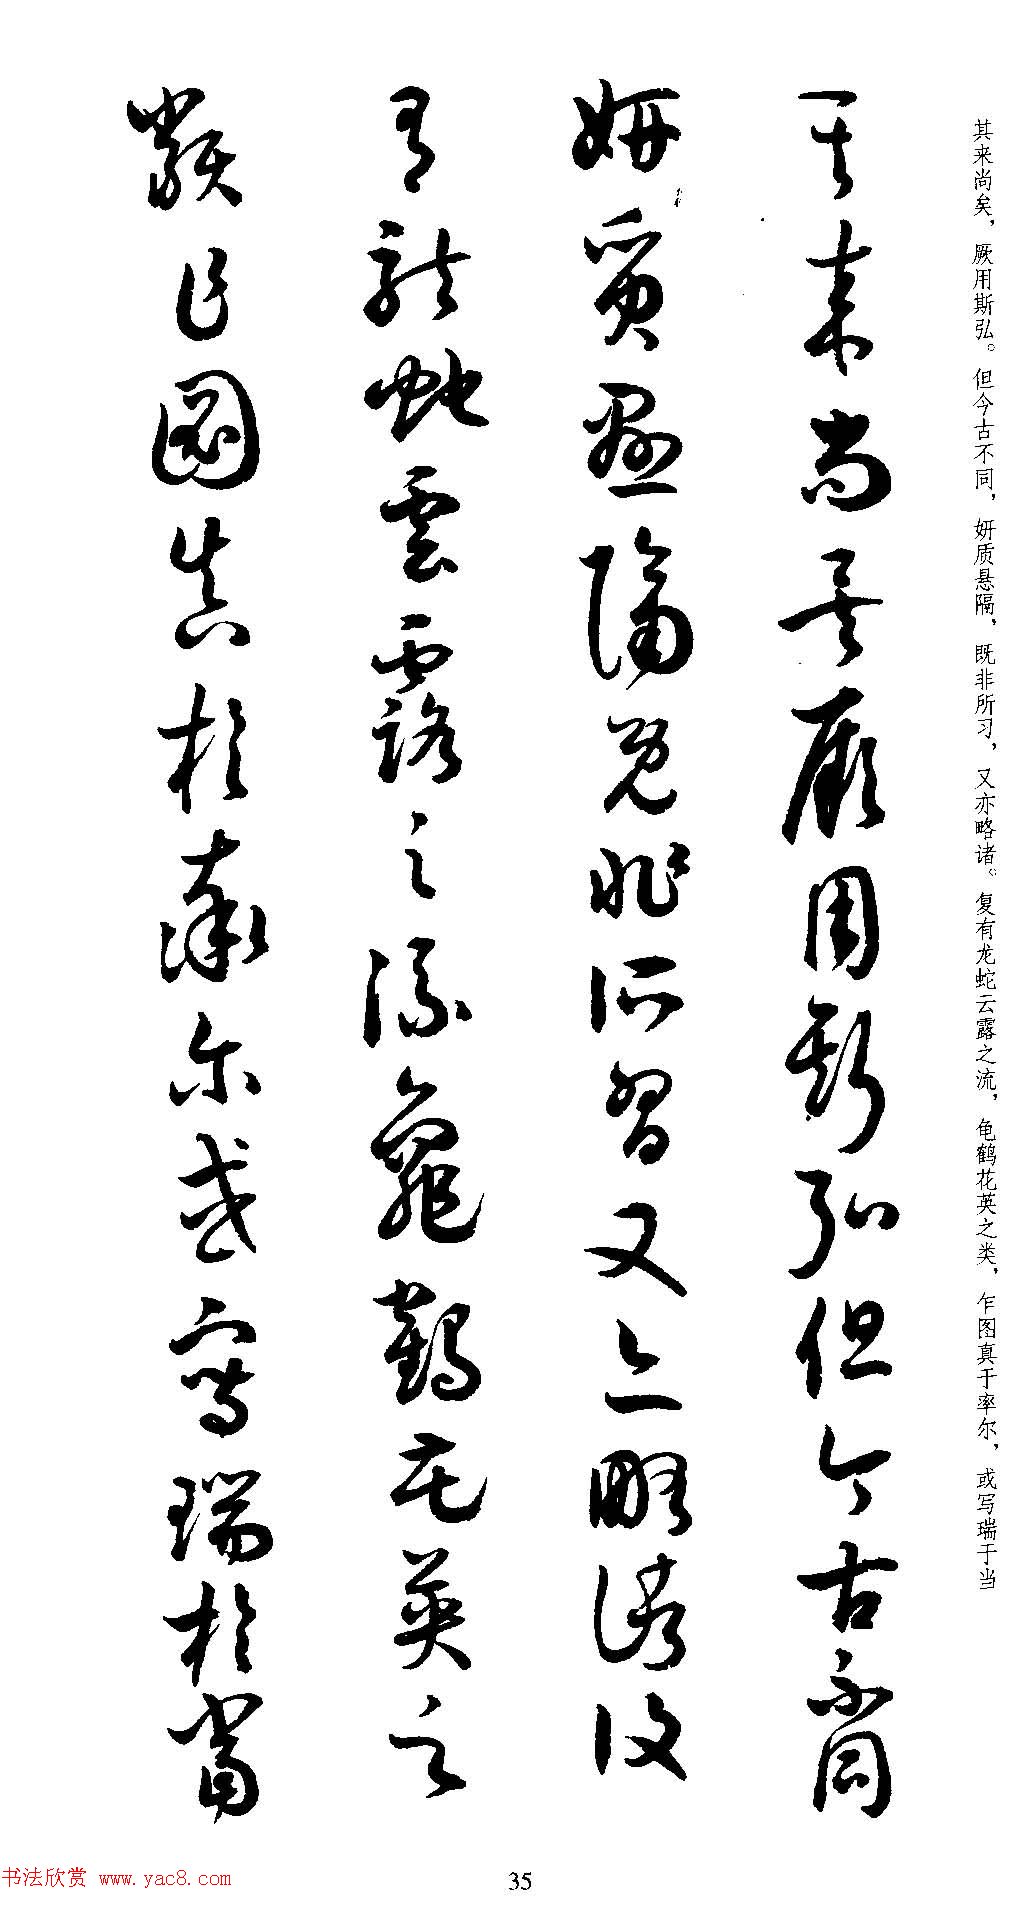 其来尚矣，厥用斯弘。但今古不同，妍质悬隔，既非所习，又亦略诸。复有龙蛇云露之流，龟鹤花英之类，乍图真于率尔，或写瑞于当
其来尚矣厥用斯弘但今古不同
妍質懸隔既非所習又亦略諸復
有龍蛇雲露之流龜鶴花英之
類乍圖真於率尔或寫瑞於當
书法欣赏 www.yac8.com
35